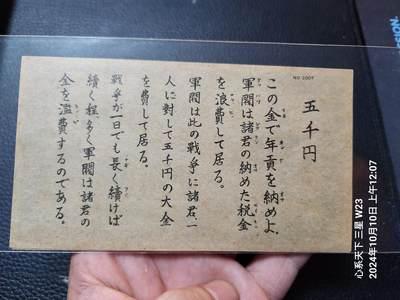 NO 2007
五千円
この金で年貢を納めよ、
軍閥は諸君の納めた税金
を浪費して居る。
軍閥は此の戰爭に諸君一
人に対して五千円の大金
を費して居る。
戰爭が一日でも長く續けば
續く程、多く軍閥は諸君の
金を濫費するのである。
心系天下 三星 W23
2024年10月10日 上午12:07